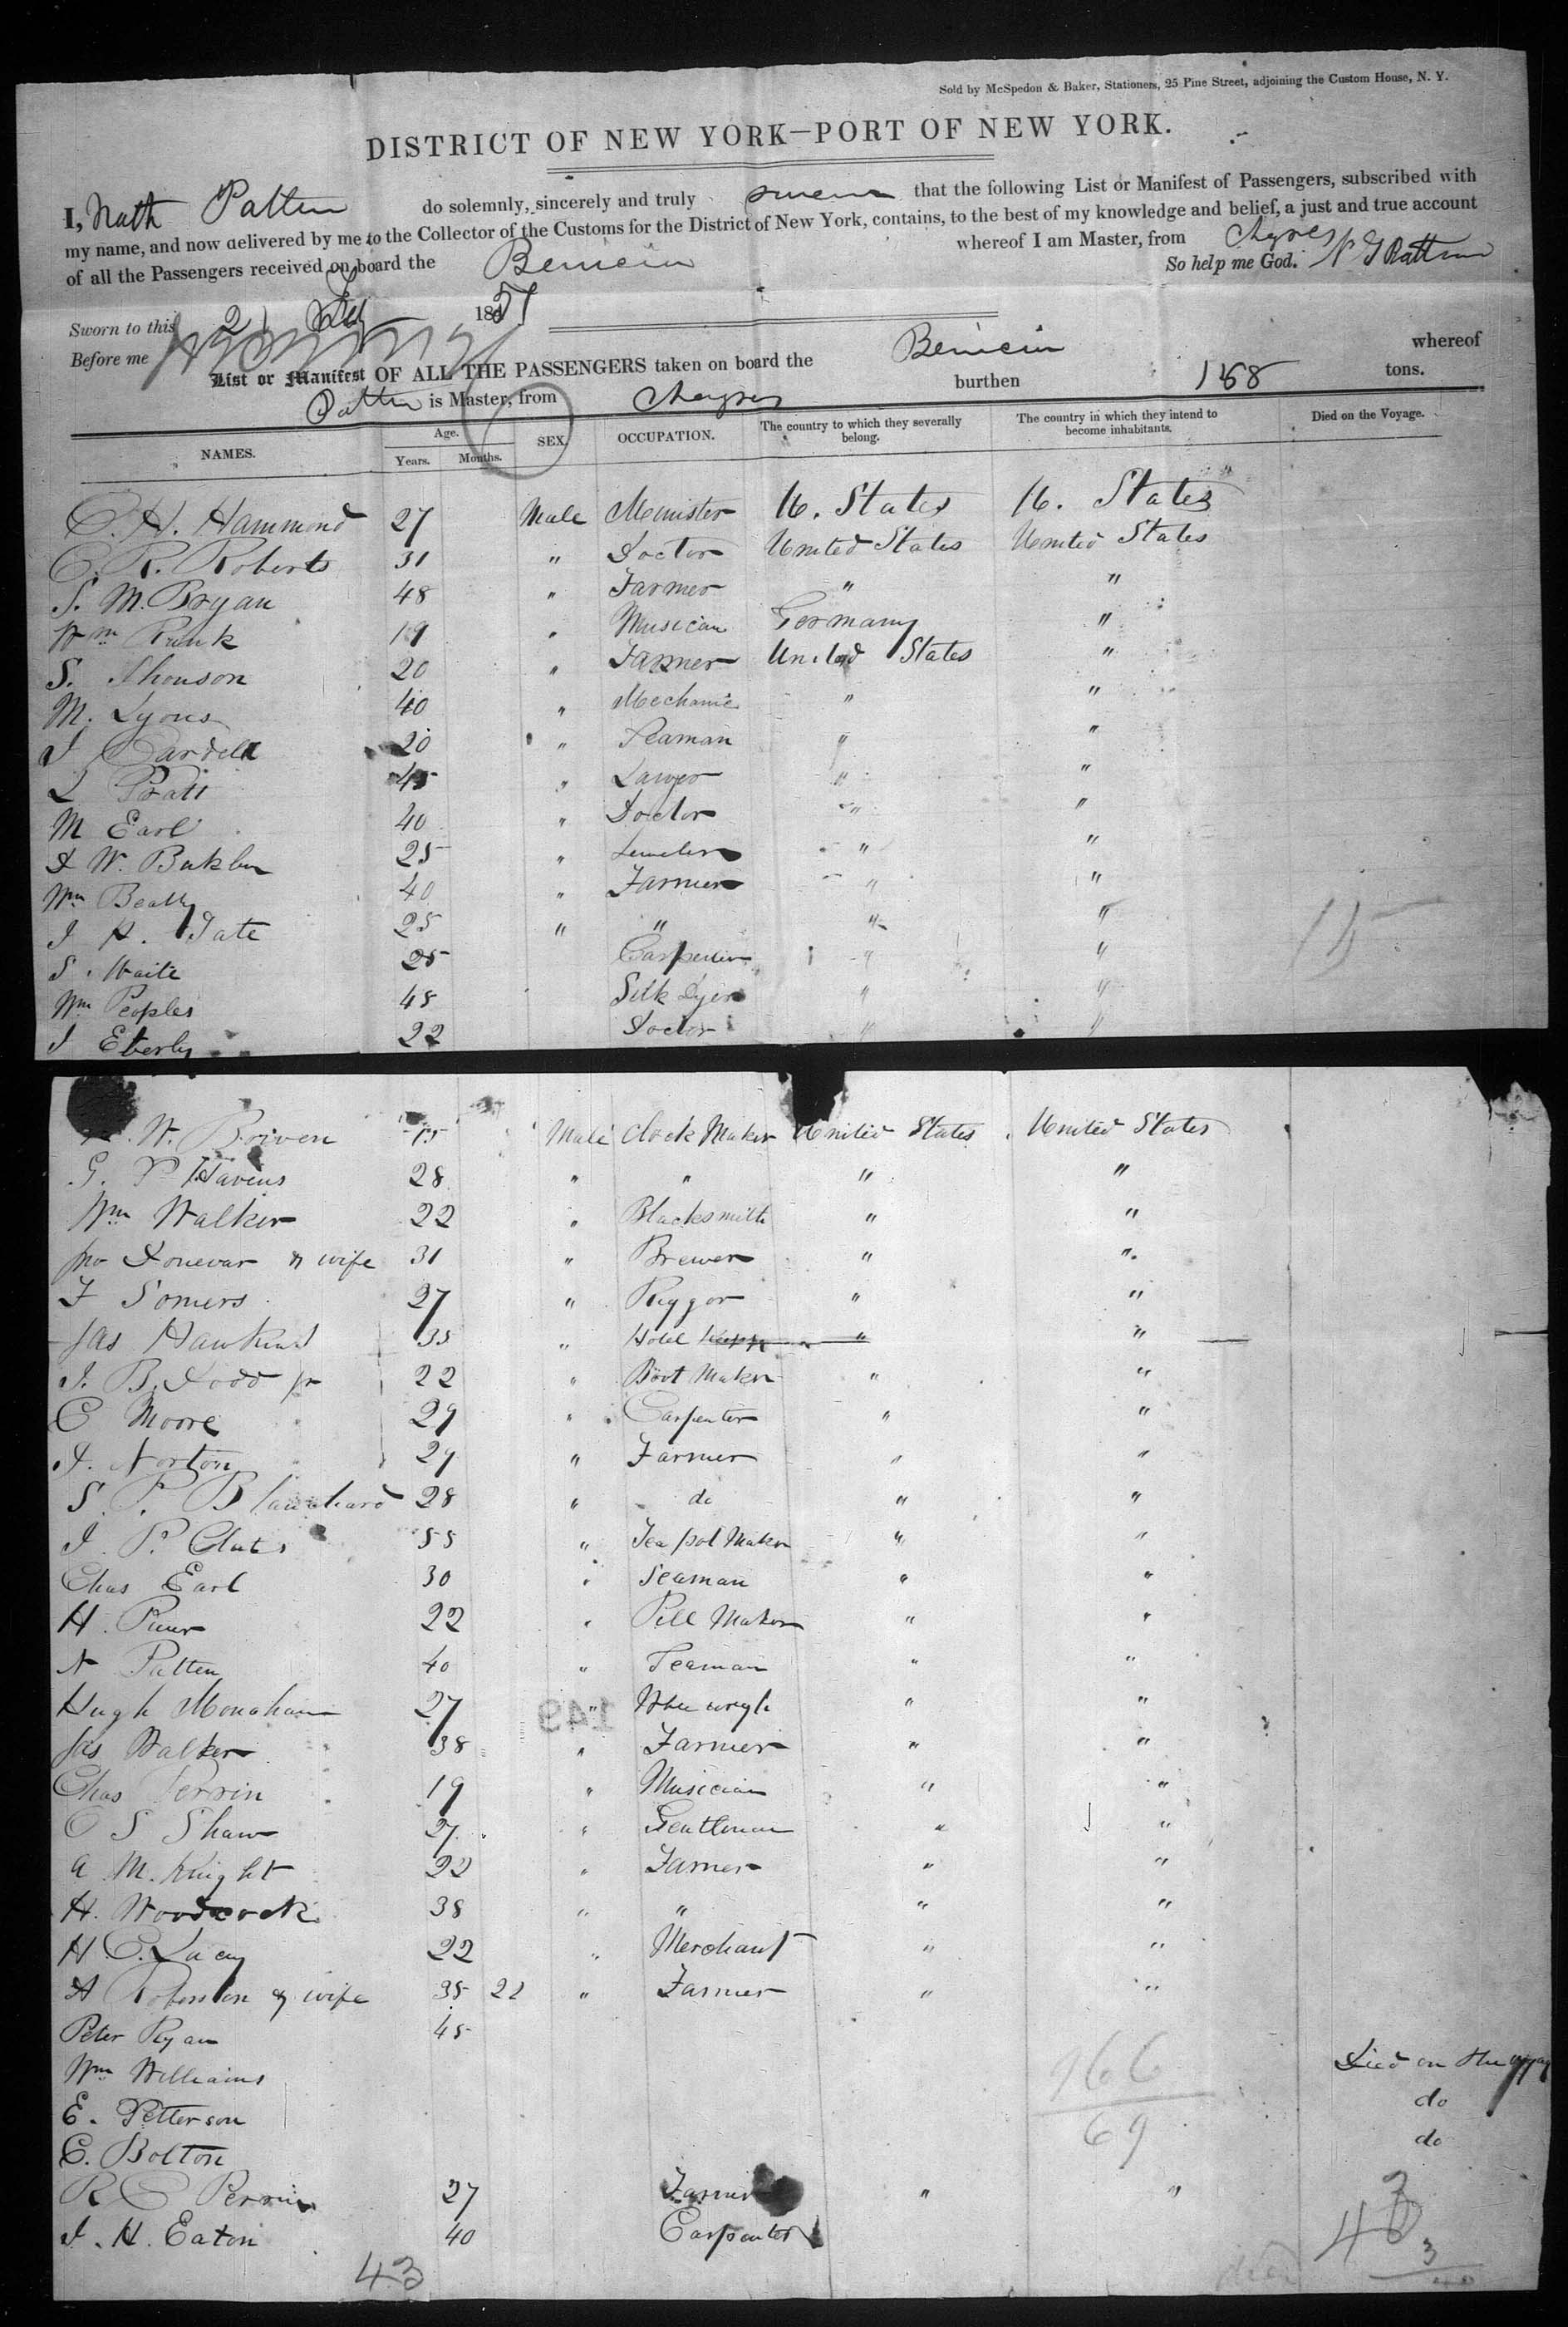 Sold by McSpedon & Baker, Stationers, 25 Pine Street, adjoining the Custom House, N. Y.
DISTRICT OF NEW YORK—PORT OF NEW YORK.
I, Nath Patten do solemnly, sincerely and truly swear that the following List or Manifest of Passengers, subscribed with
my name, and now delivered by me to the Collector of the Customs for the District of New York, contains, to the best of my knowledge and belief, a just and true account
of all the Passengers received on board the Benicia whereof I am Master, from Chagres
So help me God.
Sworn to this 21 1851
Before me
List or Manifest OF ALL THE PASSENGERS taken on board the Benicia whereof
Patten is Master, from Chagres burthen 158 tons.
NAMES. Age. Years. Months. SEX. OCCUPATION. The country to which they severally belong. The country in which they intend to become inhabitants. Died on the Voyage.
C. H. Hammond 27 Male Minister U. States U. States
C. R. Roberts 31 " Doctor United States United States
S. M. Bryan 48 " Farmer " "
Wm Runk 19 " Musican Germany "
S. Thonson 20 " Farmer United States "
M. Lyons 40 " Mechanic " "
J Cardell 20 " Seaman " "
L Pratt 45 " Lawyer " "
M Earl 40 " Doctor " "
25 " " "
Wm Beatty 40 " Farmer " "
J H. Tate 25 " " " "
S. Waite 25 Carpenter " "
Wm Peoples 48 Silk Dyer " "
J Eberly 22 Doctor " "
15
W. Boiven Male Clock Maker United States United States
G. P Havens 28 " " " "
Wm Walker 22 " Blacksmith " "
Jno Donevar & wife 31 " Brewer " "
F Somers 27 " Riggor " "
Jas Hawkins 35 " Hotel " "
J. B. Dodd jr 22 " Boot Maker " "
C Moore 29 " Carpenter " "
J. Norton 29 " Farmer " "
S. P. Blanchard 28 " do " "
J. P. Clute 55 " Tea pot Maker " "
Chas Earl 30 " Seaman " "
H. 22 " Pill Maker " "
N Patten 40 " Seaman " "
Hugh Monahan 27 " " "
149
Jas Walker 38 " Farmer " "
Chas Perrin 19 " Musician " "
C S Shaw 27 " Gentleman " "
A M. Knight 22 " Farmer " "
H. Woodcock 38 " " " "
H C. Lacy 22 " Merchant " "
A Robinson & wife 35 22 " Farmer " "
Peter Ryan 45
Wm Williams Died on the voyag
E. Petterson do
C. Bolton do
R C Perrin 27 Farmer " "
J. H. Eaton 40 Carpenter
166
69
43
3